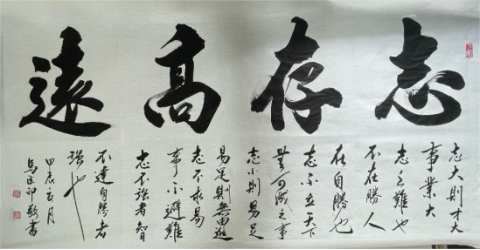 志存高遠
志大則才大
事業大
志之難也
不在勝人
在自勝也
志不立天下
無可成之事
志小則易足
易足則無由進
志不求易
事不避難
志不強者智
不達自勝者
強也
甲辰月
馬印敬書